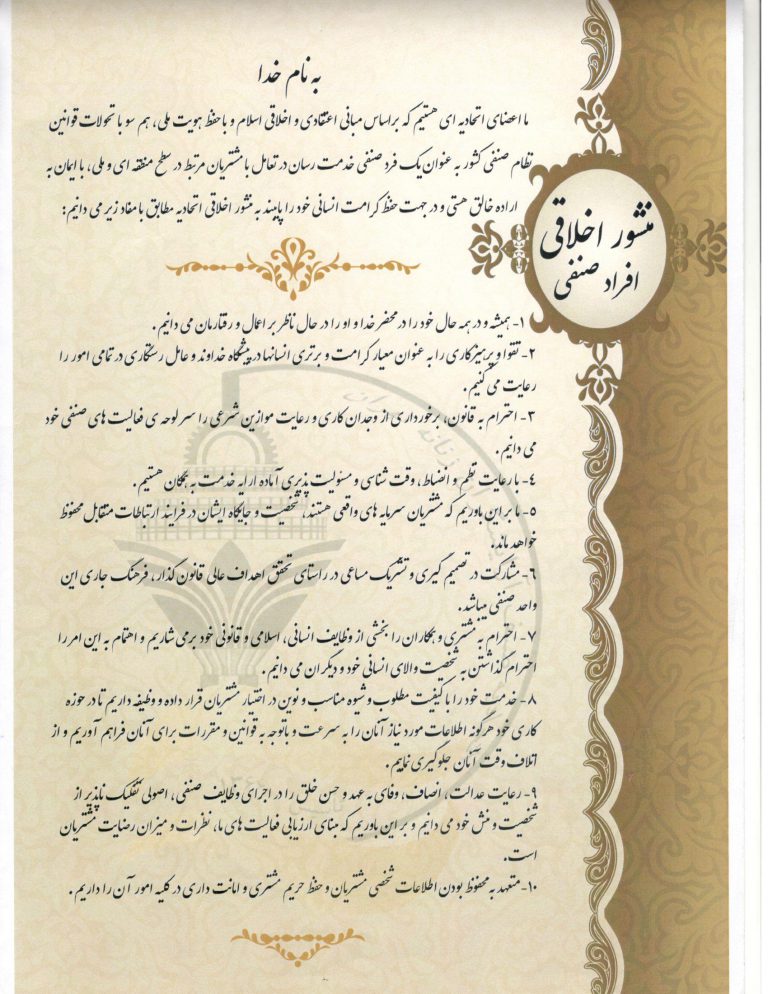 به نام خدا
ما اعضای اتحادیه ای هستیم که براساس مبانی اعتقادی و اخلاقی اسلام و با حفظ هویت ملی، هم سو با تحولات قوانین
نظام صنفی کشور به عنوان یک فرد صنفی خدمت رسان در تعامل با مشتریان مرتبط در سطح منطقه ای و ملی، با ایمان به
اراده خالق هستی و در جهت حفظ کرامت انسانی خود را پایبند به منشور اخلاقی اتحادیه مطابق با مفاد زیر می دانیم:
منشور اخلاقی
افراد صنفی
۱- همیشه و در همه حال خود را در محضر خدا و او را در حال ناظر بر اعمال و رفتارمان می دانیم.
۲- تقوا و پرهیزکاری را به عنوان معیار کرامت و برتری انسانها در پیشگاه خداوند و عامل رستگاری در تمامی امور را
رعایت می کنیم.
۳- احترام به قانون، برخورداری از وجدان کاری و رعایت موازین شرعی را سرلوحه ی فعالیت های صنفی خود
می دانیم.
۴- با رعایت نظم و انضباط، وقت شناسی و مسئولیت پذیری آماده ارایه خدمت به همگان هستیم.
۵- ما بر این باوریم که مشتریان سرمایه های واقعی هستند، شخصیت و جایگاه ایشان در فرایند ارتباطات متقابل محفوظ
خواهد ماند.
۶- مشارکت در تصمیم گیری و تشریک مساعی در راستای تحقق اهداف عالی قانون گذار، فرهنگ جاری این
واحد صنفی میباشد.
۷- احترام به مشتری و همکاران را بخشی از وظایف انسانی، اسلامی و قانونی خود برمی شاریم و اهتمام به این امر را
احترام گذاشتن به شخصیت والای انسانی خود و دیگران می دانیم.
۸- خدمت خود را با کیفیت مطلوب و شیوه مناسب و نوین در اختیار مشتریان قرار داده و وظیفه داریم تا در حوزه
کاری خود هرگونه اطلاعات مورد نیاز آنان را به سرعت و باتوجه به قوانین و مقررات برای آنان فراهم آوریم و از
اتلاف وقت آنان جلوگیری نماییم.
۹- رعایت عدالت، انصاف، وفای به عهد و حسن خلق را در اجرای وظایف صنفی، اصولی تفکیک ناپذیر از
شخصیت و منش خود می دانیم و بر این باوریم که مبنای ارزیابی فعالیت های ما، نظرات و میزان رضایت مشتریان
است.
۱۰- متعهد به محفوظ بودن اطلاعات شخصی مشتریان و حفظ حریم مشتری و امانت داری در کلیه امور آن را داریم.